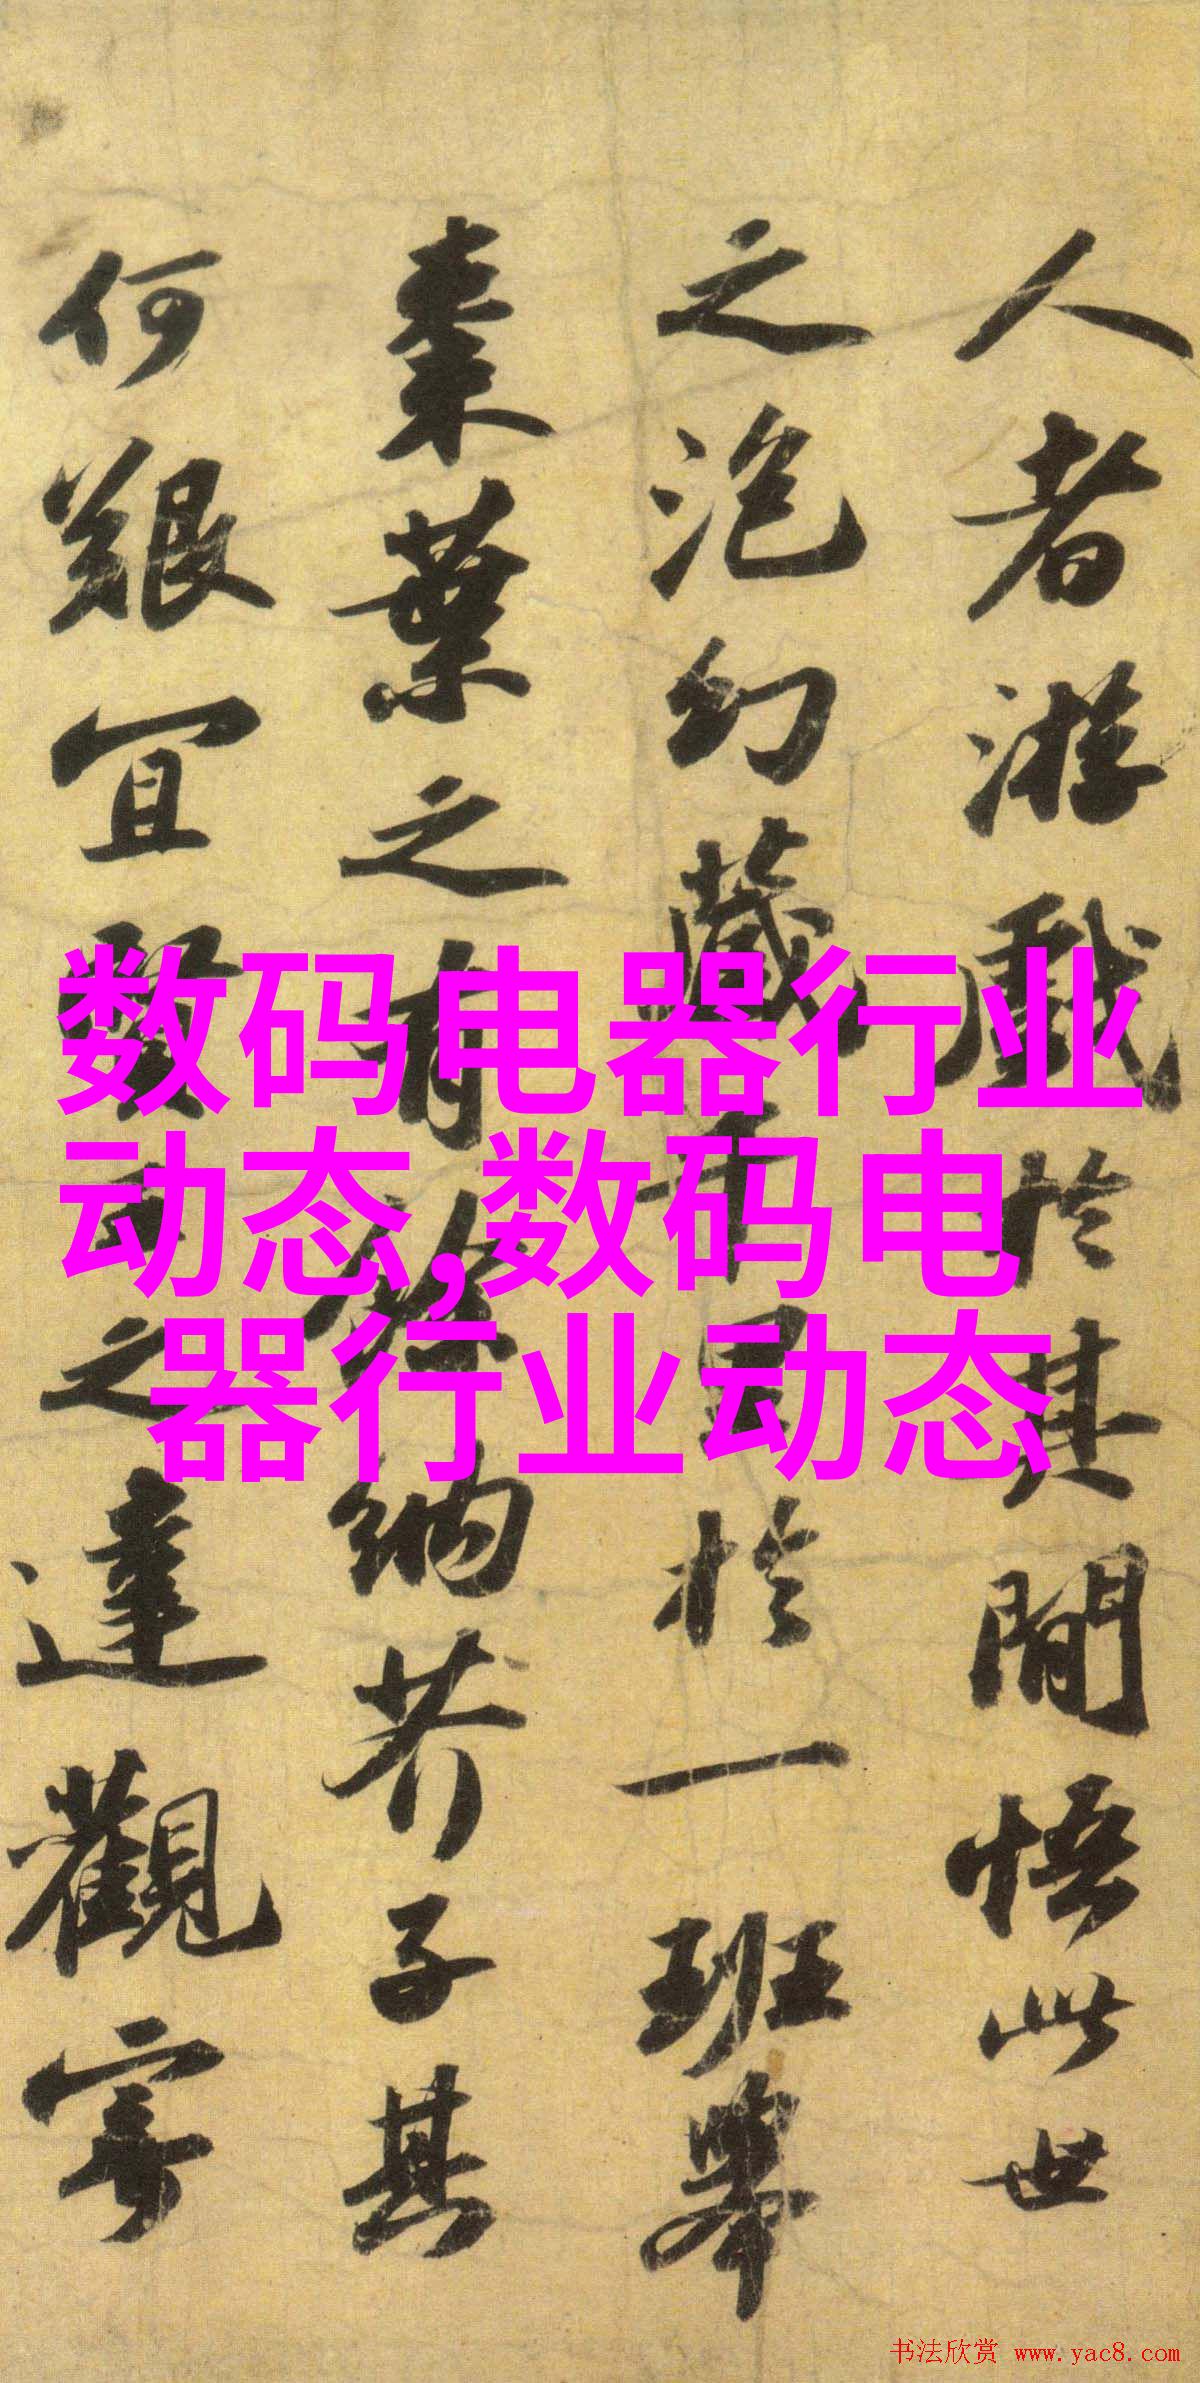 人者游戲於其閒悟此世
之泡幻藏千里於一班舉
棗葉之有餘納芥子其
何艱宜賢王之達觀寄
数码电器行业
动态,数码电
器行业动态
书法欣赏 www.yac8.com